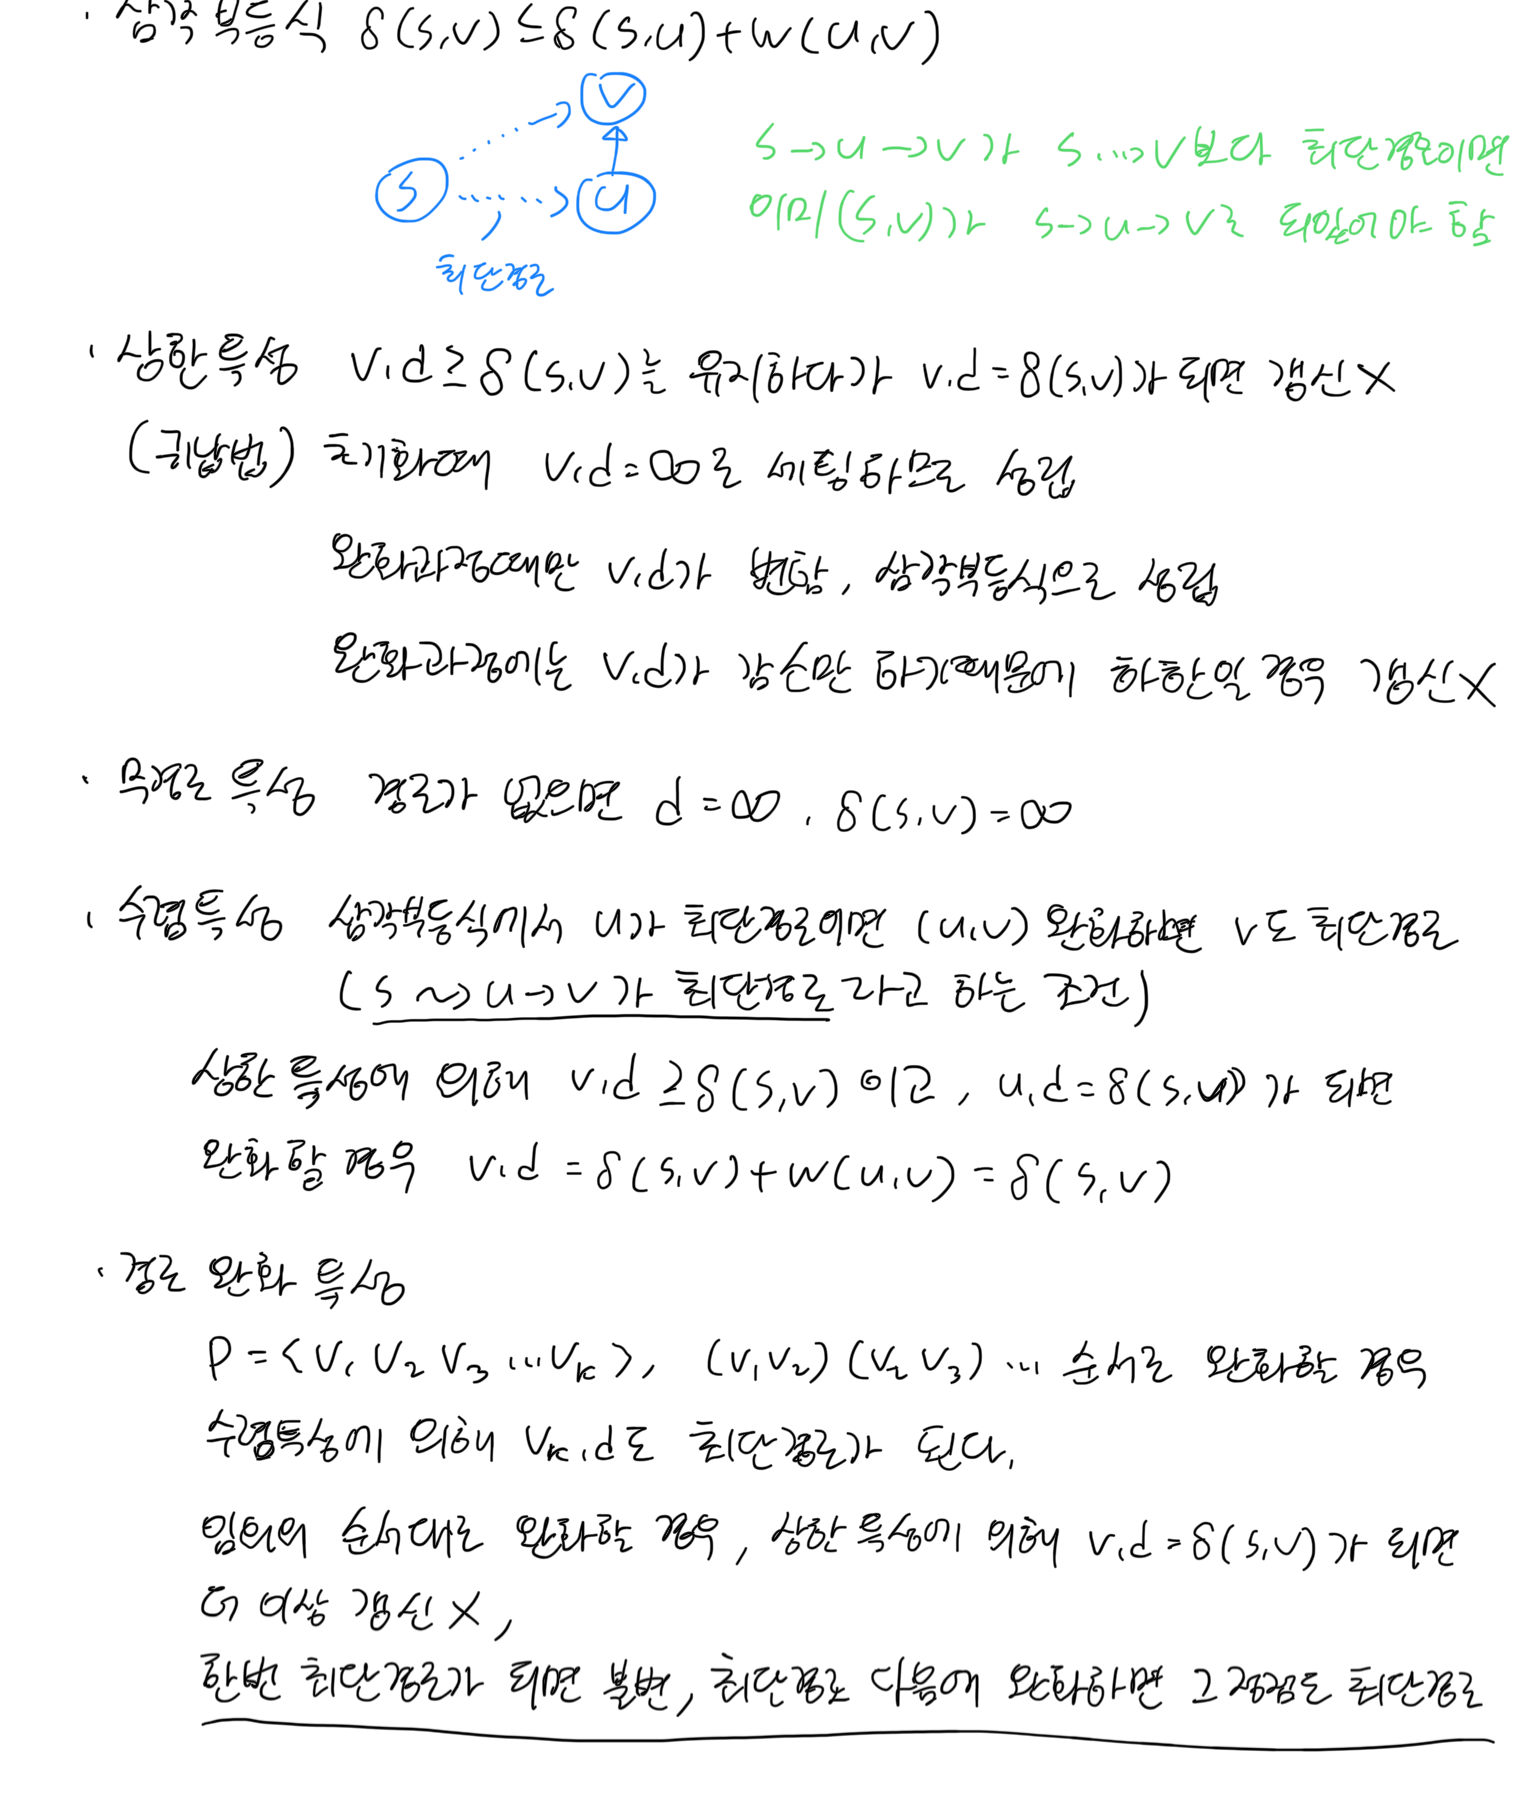 · 삼각부등식 δ(s,v) ≤ δ(s,u) + w(u,v)
v
s
u
최단경로
s→u→v가 s...→v보다 최단경로이면
이미 (s,v)가 s→u→v로 되있어야 함
· 상한 특성 v.d ≥ δ(s,v)는 유지하다가 v.d = δ(s,v)가 되면 갱신 X
(귀납법) 초기화때 v.d = ∞로 세팅하므로 성립
완화과정때만 v.d가 변함, 삼각부등식으로 성립
완화과정에는 v.d가 감소만 하기때문에 하한일 경우 갱신 X
· 무경로 특성 경로가 없으면 d = ∞, δ(s,v) = ∞
· 수렴특성 삼각부등식에서 u가 최단경로이면 (u,v) 완화하면 v도 최단경로
(s ⤳ u → v가 최단경로라고 하는 조건)
상한 특성에 의해 v.d ≥ δ(s,v) 이고, u.d = δ(s,u)가 되면
완화할 경우 v.d = δ(s,v) + w(u,v) = δ(s,v)
· 경로 완화 특성
P = <v₁ v₂ v₃ ... vₖ>, (v₁v₂) (v₂v₃) ... 순서로 완화할 경우
수렴특성에 의해 vₖ.d도 최단경로가 된다.
임의의 순서대로 완화할 경우, 상한 특성에 의해 v.d = δ(s,v)가 되면
더 이상 갱신 X,
한번 최단경로가 되면 불변, 최단경로 다음에 완화하면 그 정점도 최단경로